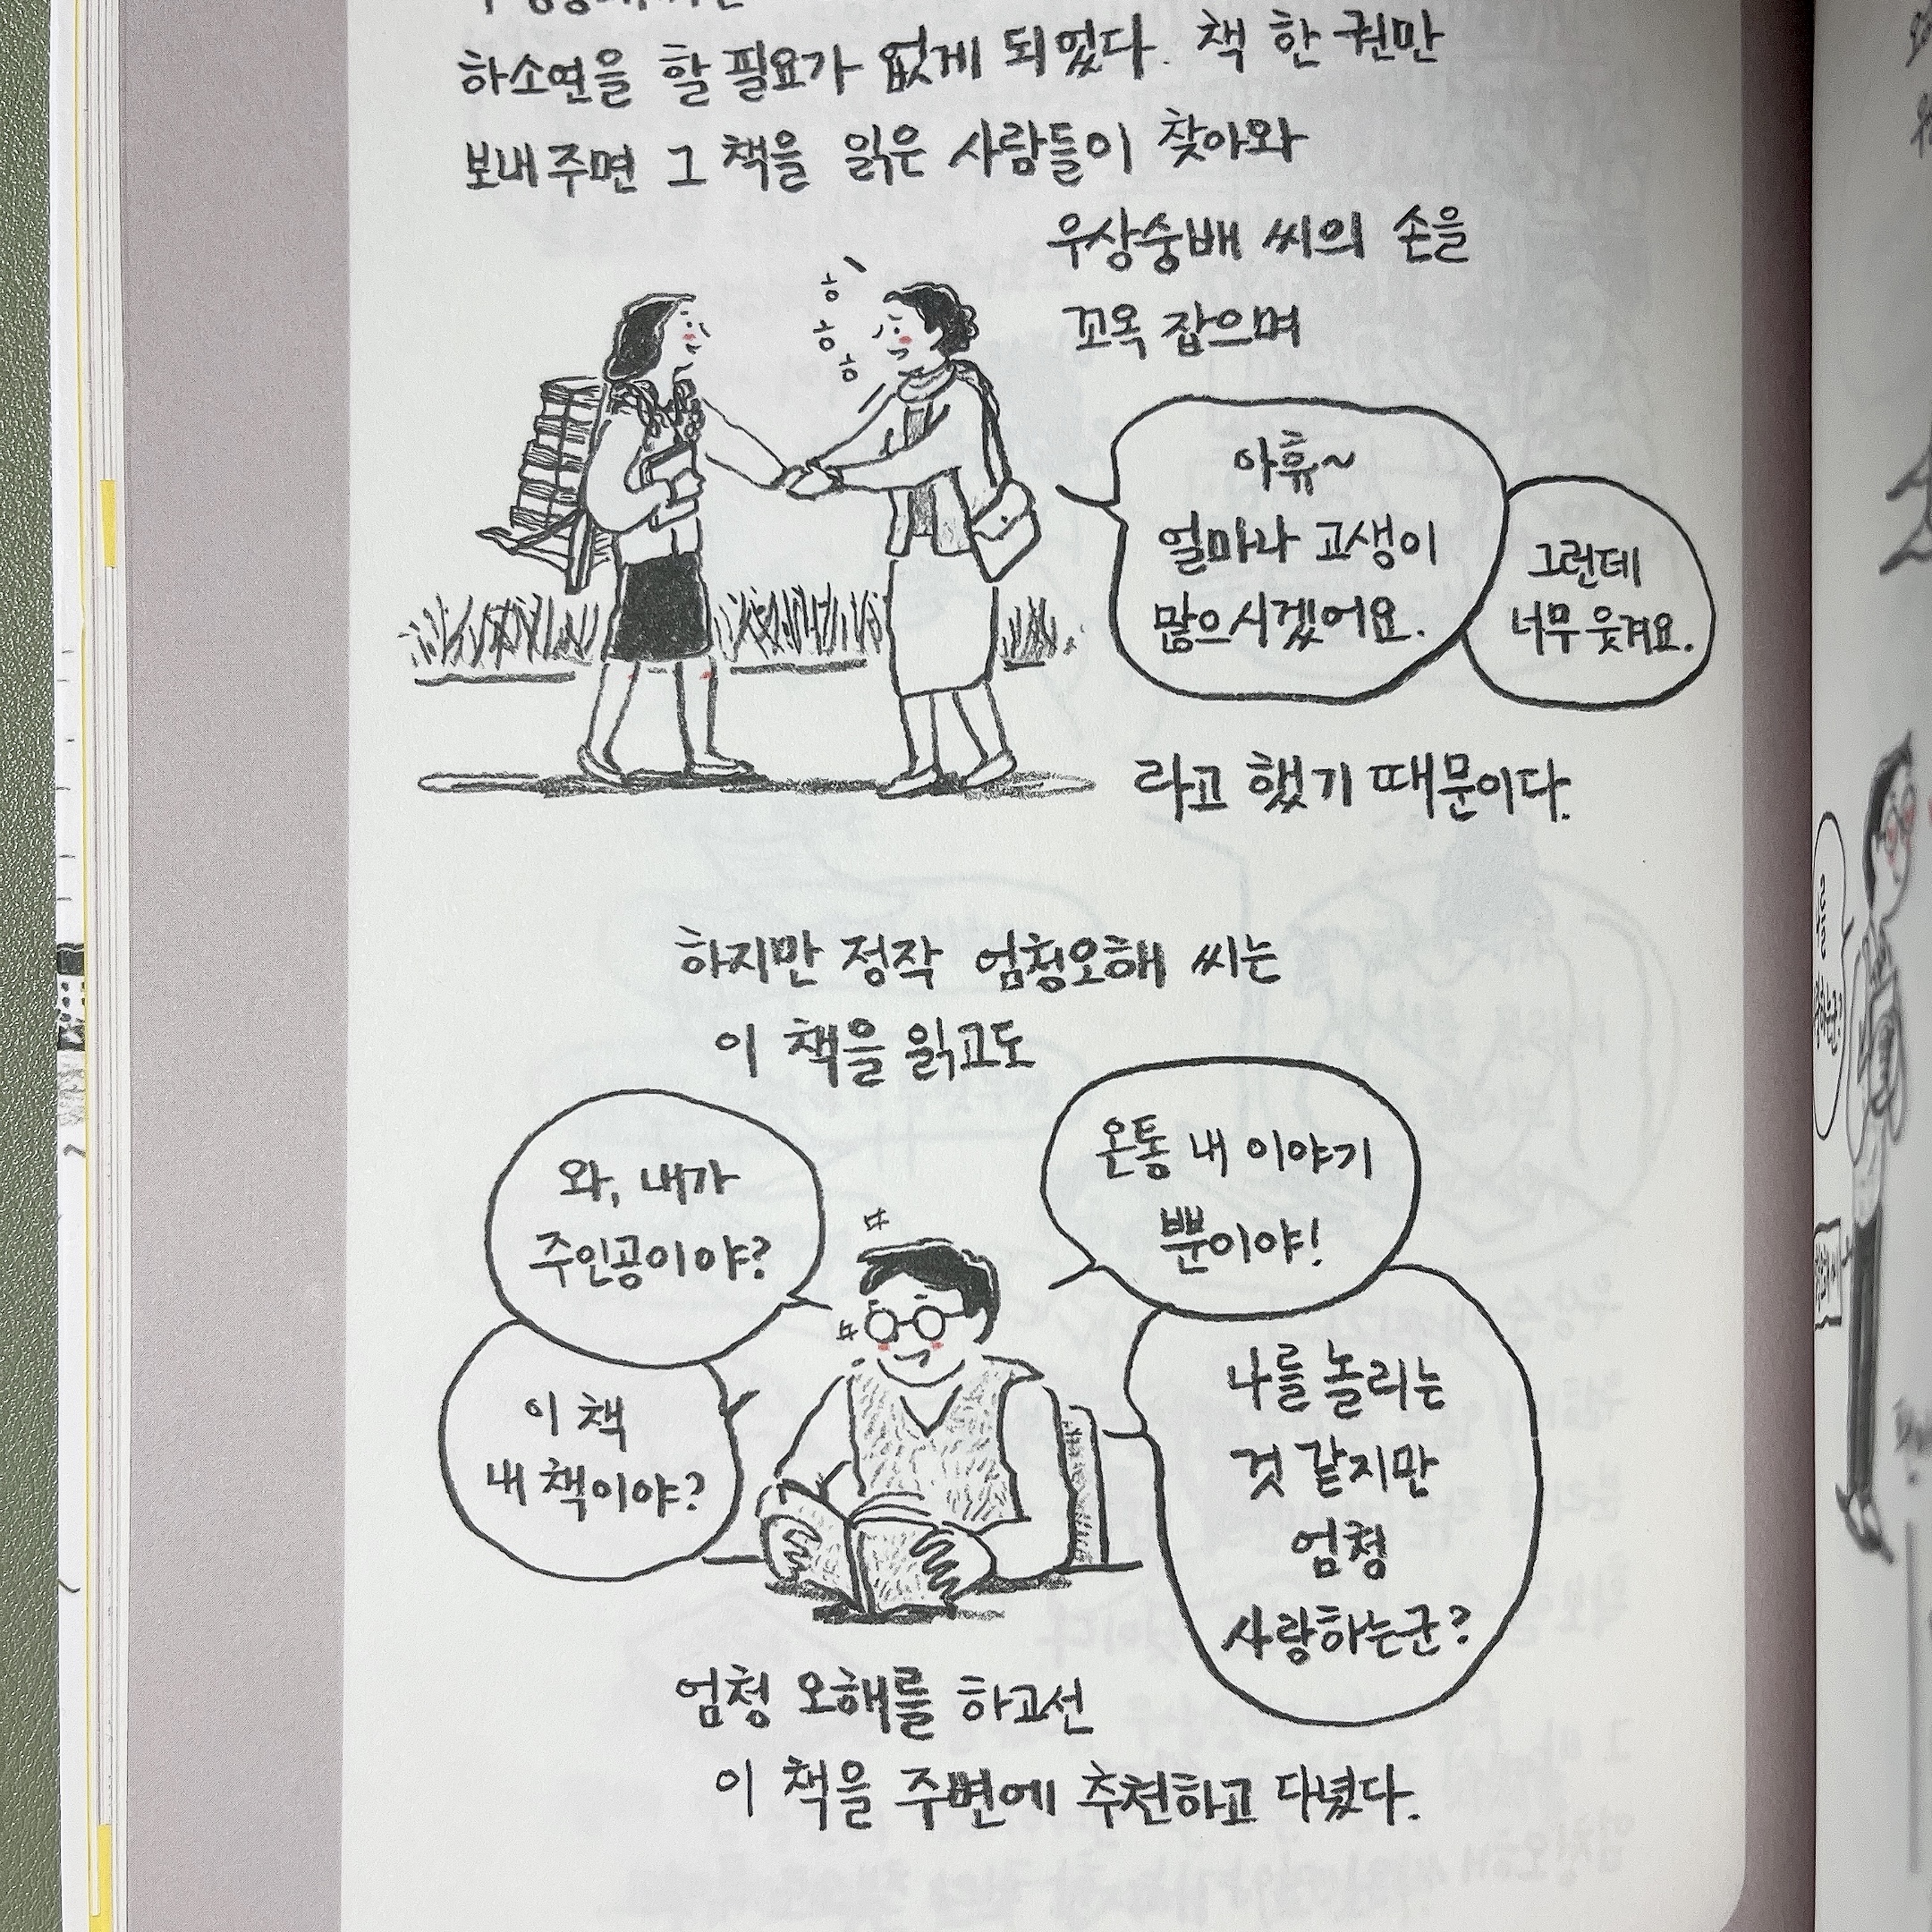 하소연을 할 필요가 없게 되었다. 책 한 권만
보내 주면 그 책을 읽은 사람들이 찾아와
우상숭배 씨의 손을
꼬옥 잡으며
ㅎ
ㅎ
ㅎ
아휴~
얼마나 고생이
많으시겠어요.
그런데
너무 웃겨요.
라고 했기 때문이다.
하지만 정작 엄청오해 씨는
이 책을 읽고도
와, 내가
주인공이야?
이 책
내 책이야?
온통 내 이야기
뿐이야!
나를 놀리는
것 같지만
엄청
사랑하는군?
엄청 오해를 하고선
이 책을 주변에 추천하고 다녔다.